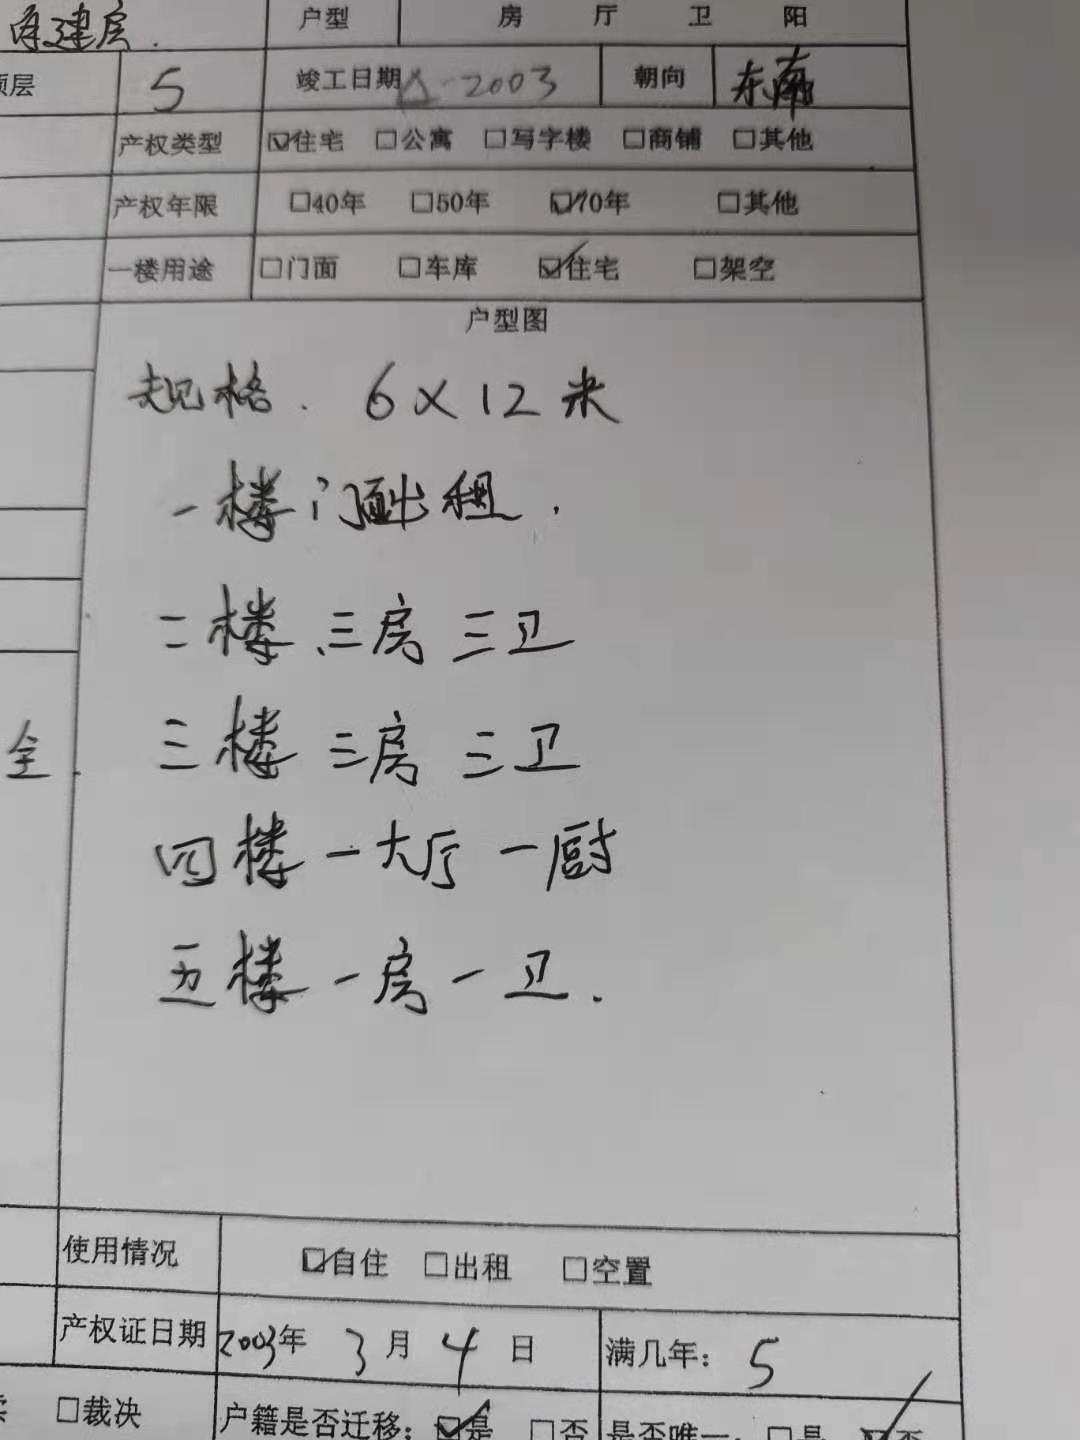 建房.
户型 房 厅 卫 阳
顶层 5 竣工日期 2003 朝向 东南
产权类型 ☑住宅 □公寓 □写字楼 □商铺 □其他
产权年限 □40年 □50年 ☑70年 □其他
一楼用途 □门面 □车库 ☑住宅 □架空
户型图
规格. 6×12米
一楼门面出租.
二楼、三房三卫
三楼 三房 三卫
全
四楼 一大厅 一厨
五楼 一房一卫.
使用情况 ☑自住 □出租 □空置
产权证日期 2003年 3月 4日 满几年: 5
□裁决 户籍是否迁移: ☑是 □否 是否唯一: □是 ☑否